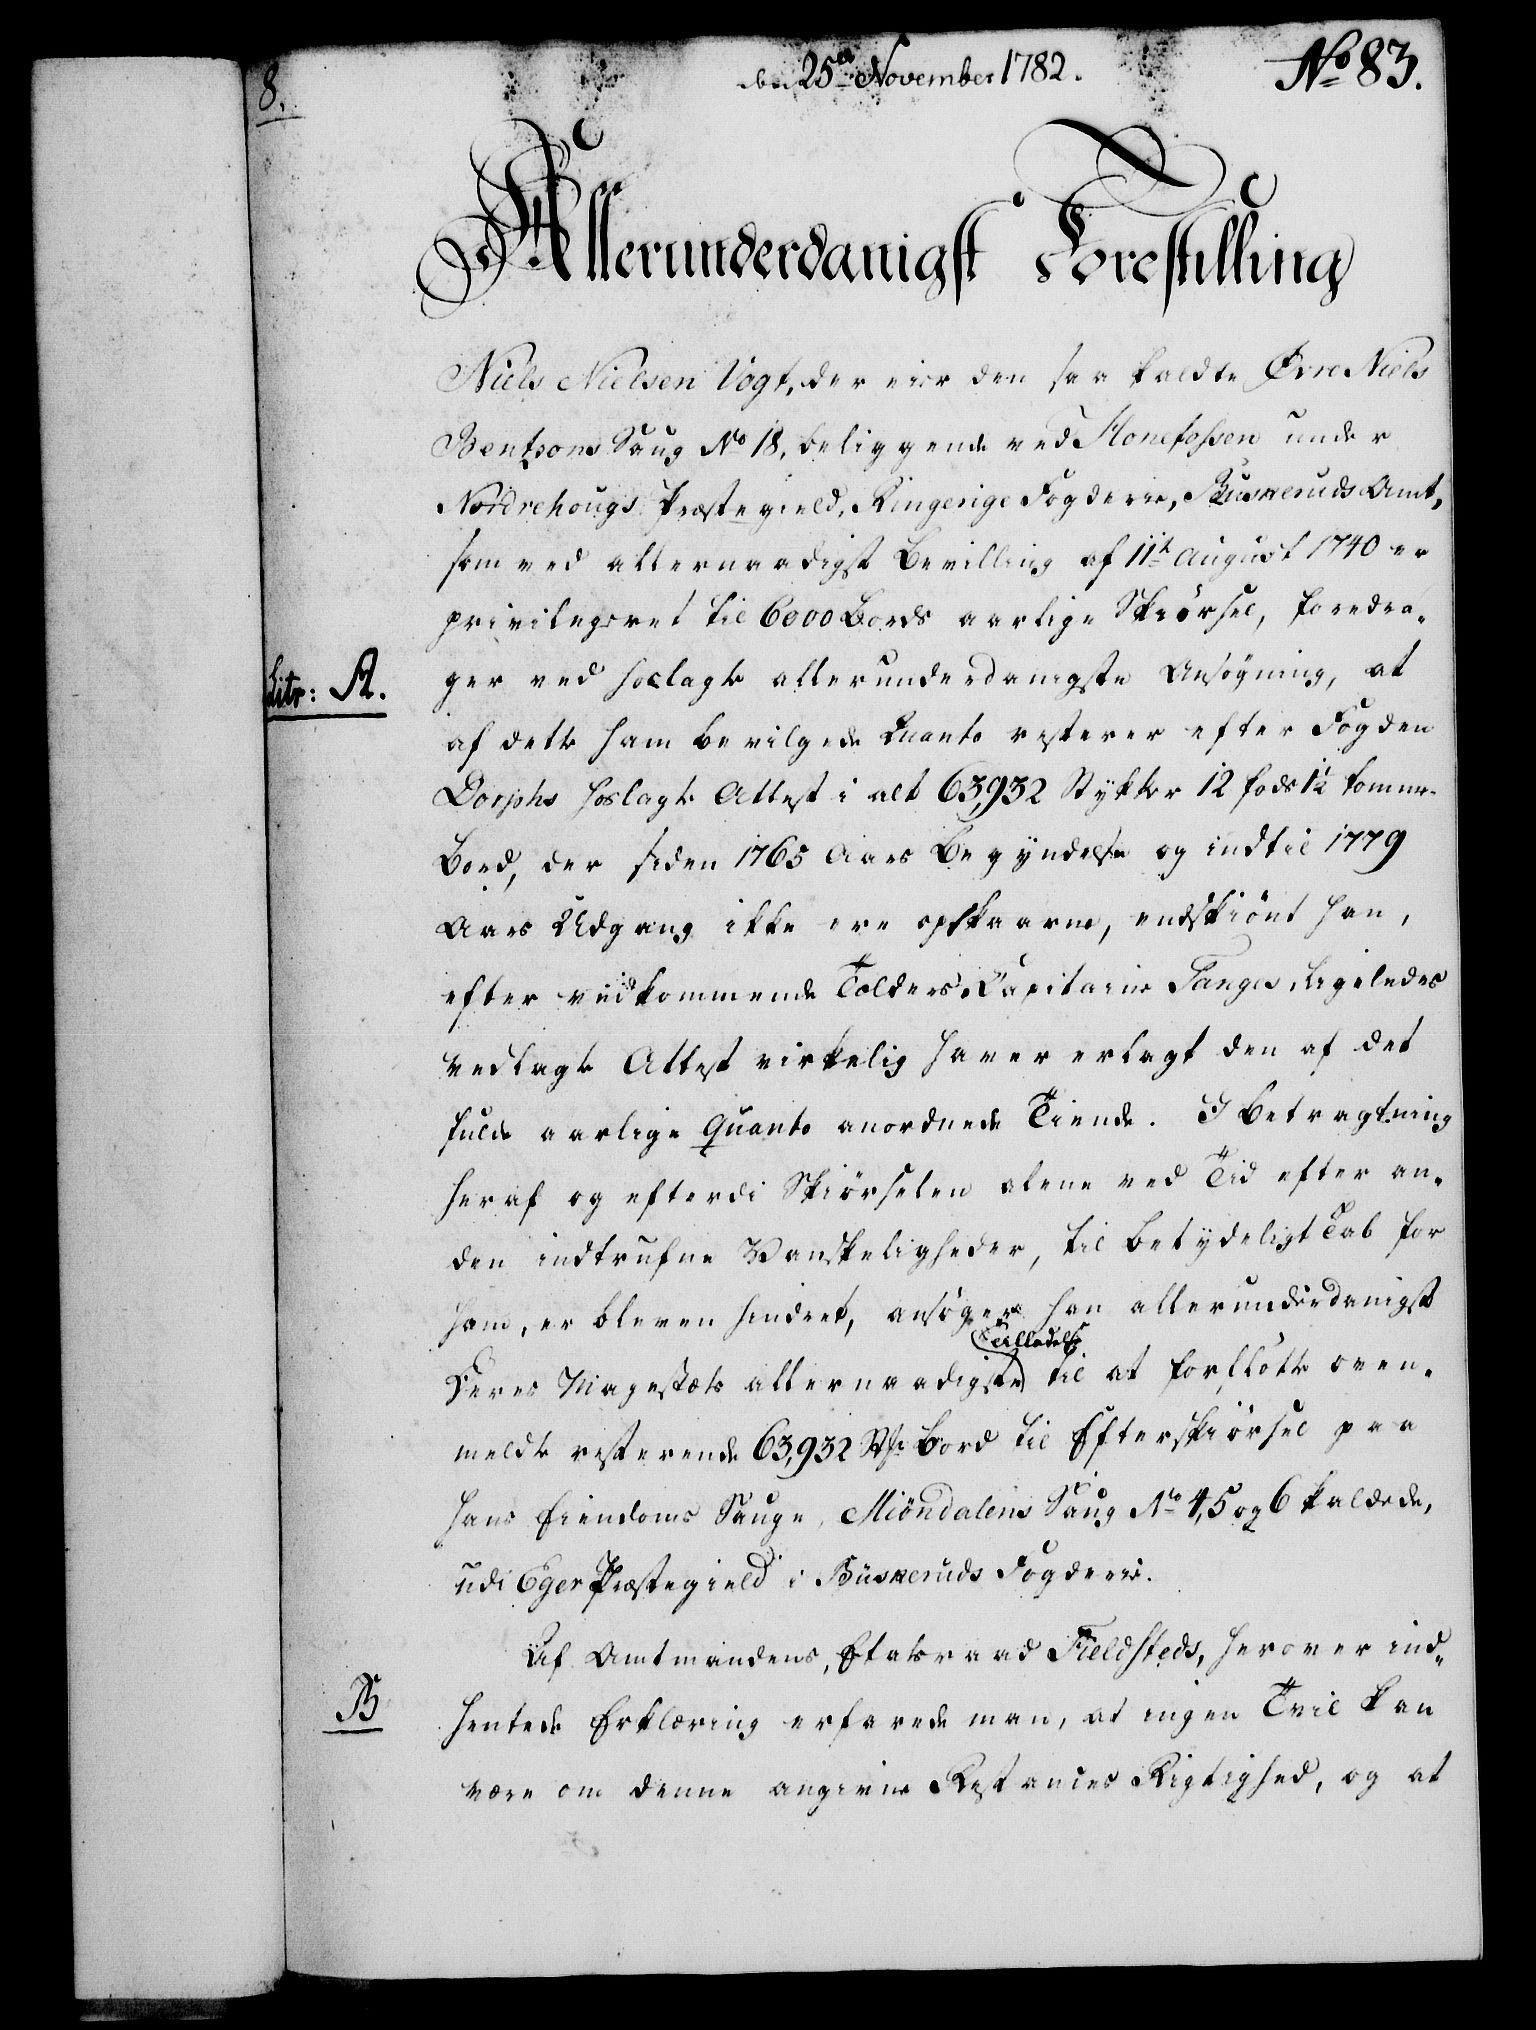 8.
den 25de November 1782.
No 83.
Allerunderdanigst Forestilling
Niels Nielsen Vogt, der eier den saa kaldte Øvre Niels
Bentsons Saug No 18, beliggende ved Honefossen under
Nordrehougs Præstegield, Ringerige Fogderie, Buskeruds Amt,
som ved allernaadigst Bevilling af 11te August 1740 er
privilegeret til 6000 Bords aarlige Skiørsel, foredra-
Litr: A.
ger ved hoslagte allerunderdanigste Ansøgning, at
af dette ham bevilgede Quanto resterer efter Fogden
Dorphs hoslagte Attest i alt 63,932 Stykker 12 fods 1¼ tomme
Bord, der siden 1765 Aars Begyndelse og indtil 1779
Aars Udgang ikke ere opskaarne, endskiønt han,
efter vedkommende Tolders, Capitaine Tanges, ligeledes
vedlagte Attest virkelig haver erlagt den af det
fulde aarlige Quanto anordnede Tiende. I Betragtning
heraf og efterdi Skiørselen alene ved Tid efter an-
den indtrufne Vanskeligheder, til betydeligt Tab for
ham, er bleven hindret, ansøger han allerunderdanigst
Tilladelse
Deres Majestæts allernaadigste til at forflötte oven-
meldte resterende 63,932 St. Bord til Efterskiørsel paa
hans Eiendoms Sauge, Miöndalens Saug No 4, 5 og 6 kaldede,
udi Eger Præstegield i Buskeruds Fogderie.
Af Amtmandens, Etatsraad Fieldsteds, herover ind-
B
hentede Erklæring erfarede man, at ingen Tvil kan
være om denne angivne Restances Rigtighed, og at